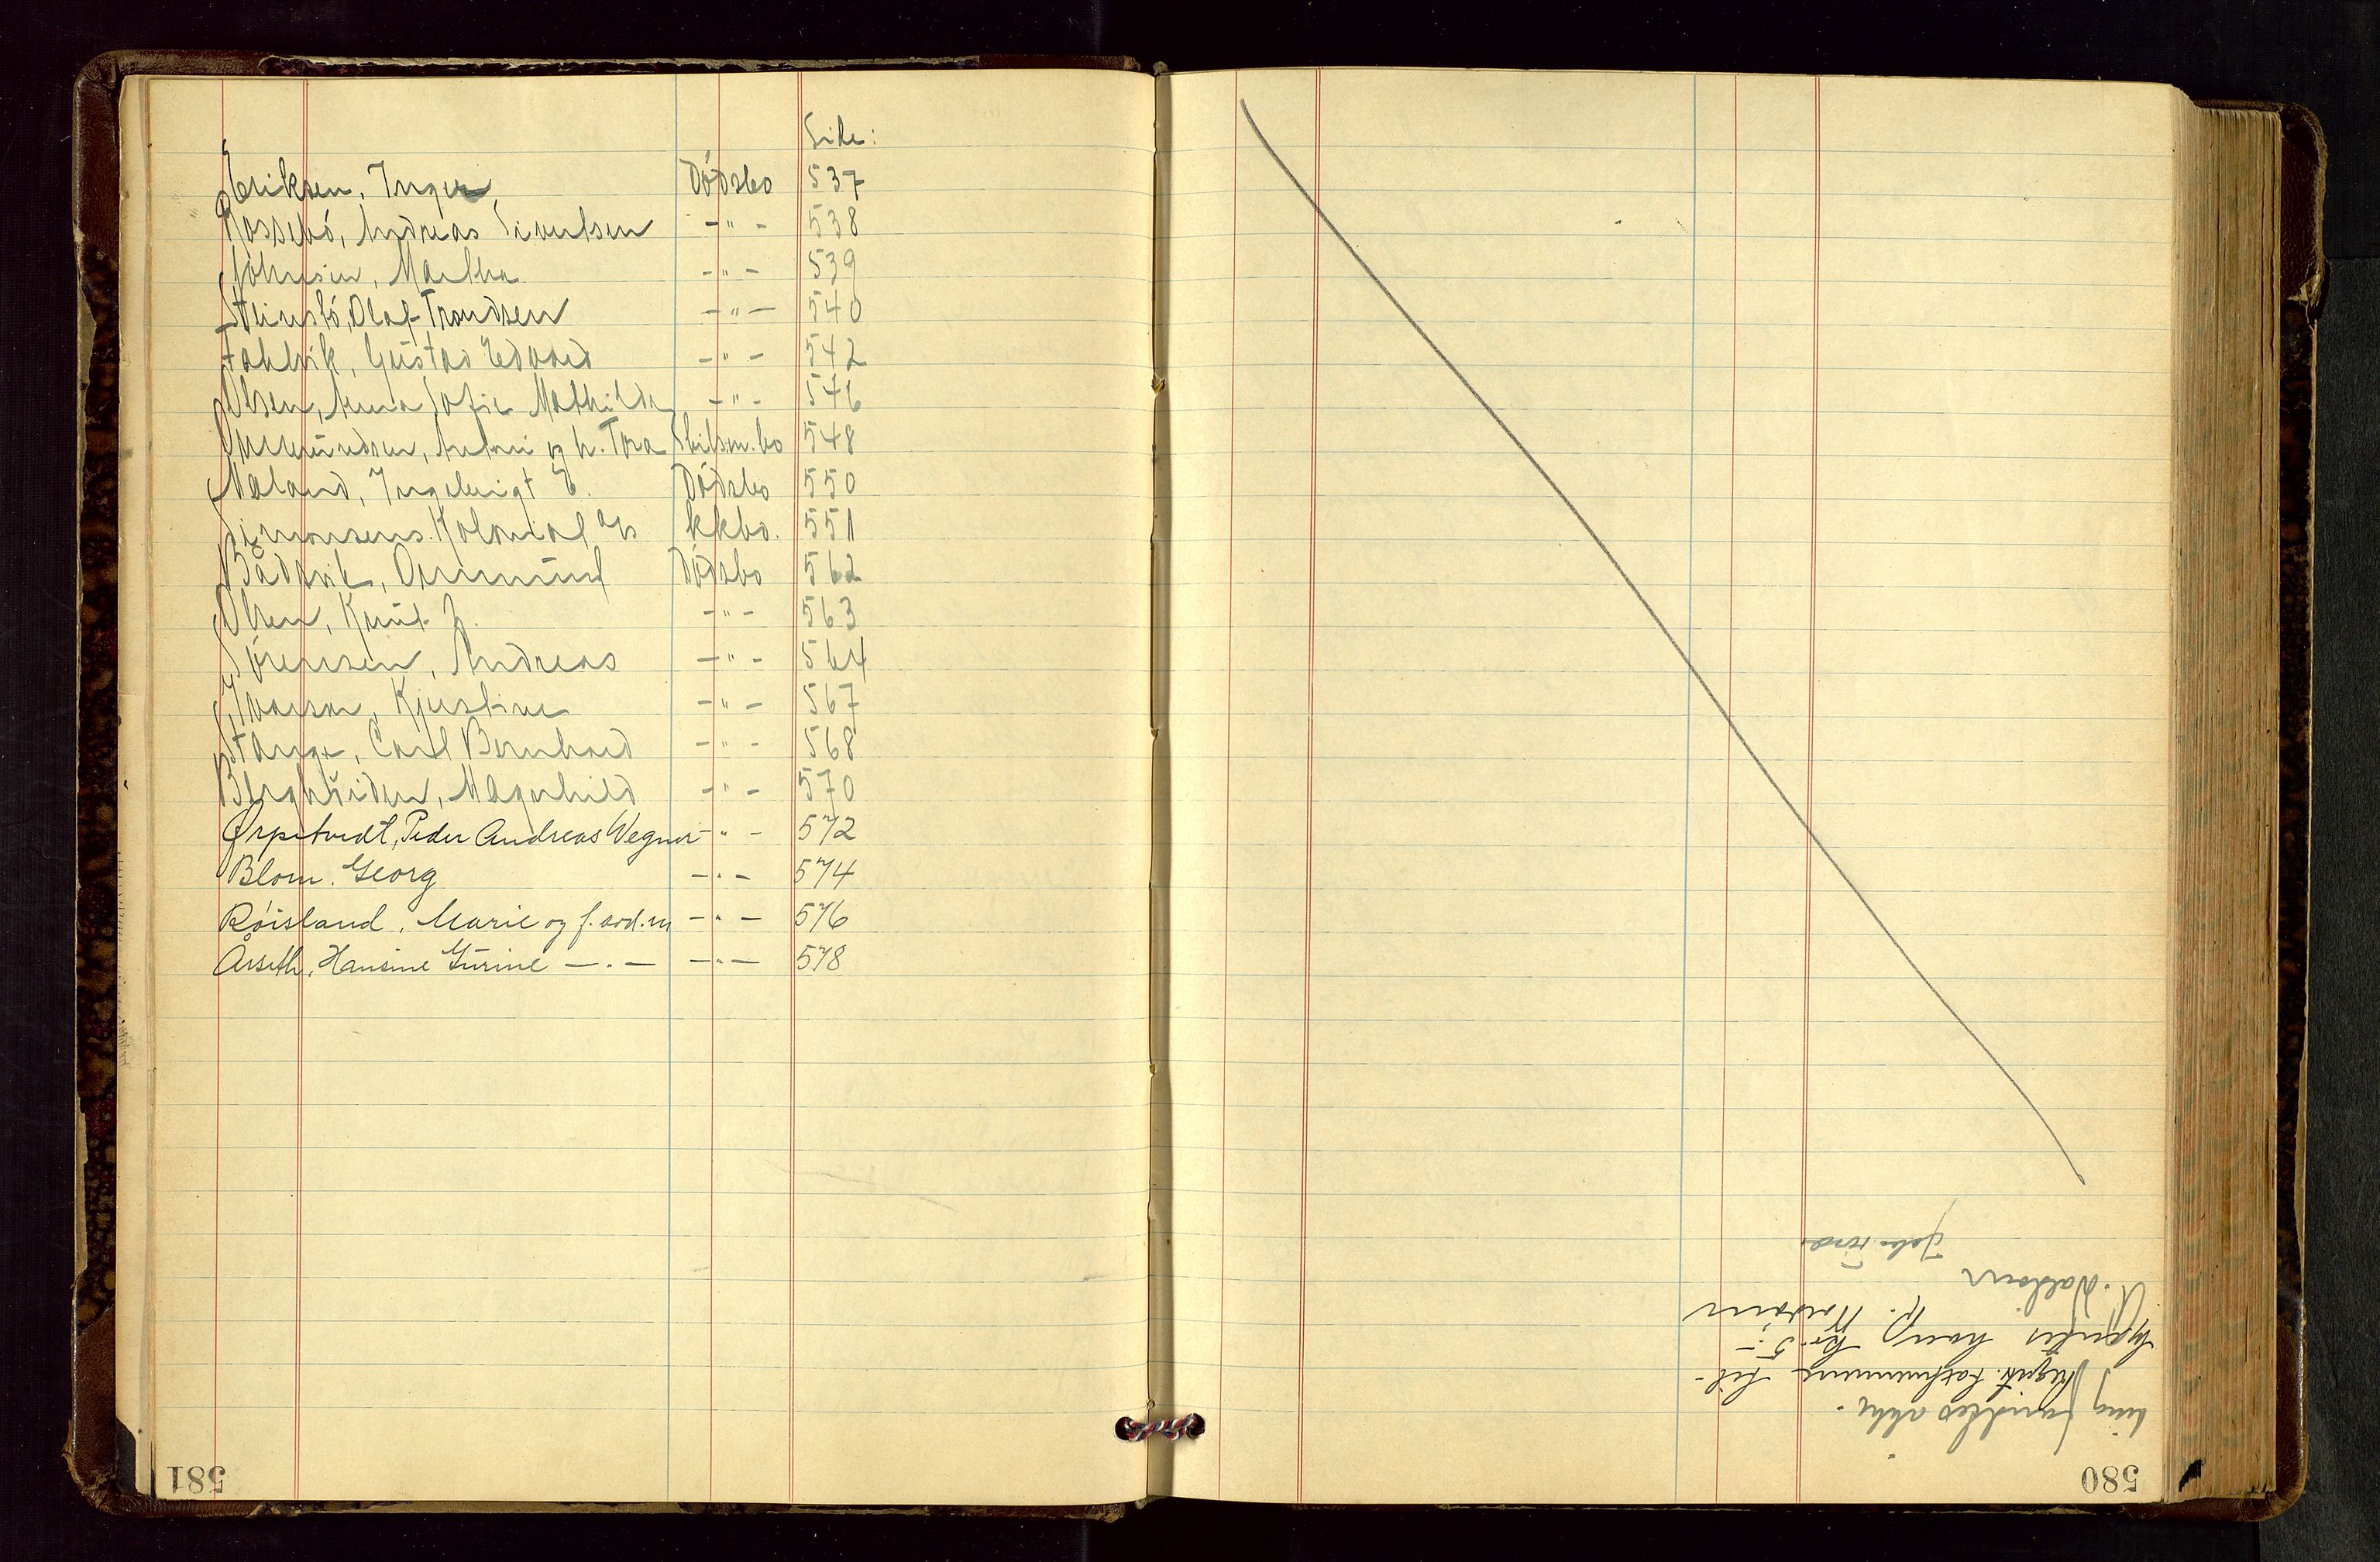 Side:
Eriksen, Inger Dødsbo 537
Rossebø, Andreas Sivertsen -"- 538
Johnsen, Martha -"- 539
Steinsbø, Olaf Trondsen -"- 540
Fahlvik, Gustav Edvard -"- 542
Olsen, Anna Sofie Mathilde -"- 546
Ommundsen, Antoni og h. Tora Skilsm.bo 548
Meland, Ingebrigt E. Dødsbo 550
Simonsens Kolonial A/s kkbo. 551
Bådsvik, Ommund Dødsbo 562
Olsen, Knut J. -"- 563
Sørensen, Andreas -"- 564
Iversen, Kjerstine -"- 567
Stange, Carl Bernhard -"- 568
Magnhild -"- 570
Ørpetvedt, Peder Andreas Wegner -"- 572
Blom. Georg -"- 574
Røisland, Marie og f. avd. m -"- 576
Årseth, Hansine Gurine -"- -"- 578
581
580
ting fandtes ikke.
kr. 5.-